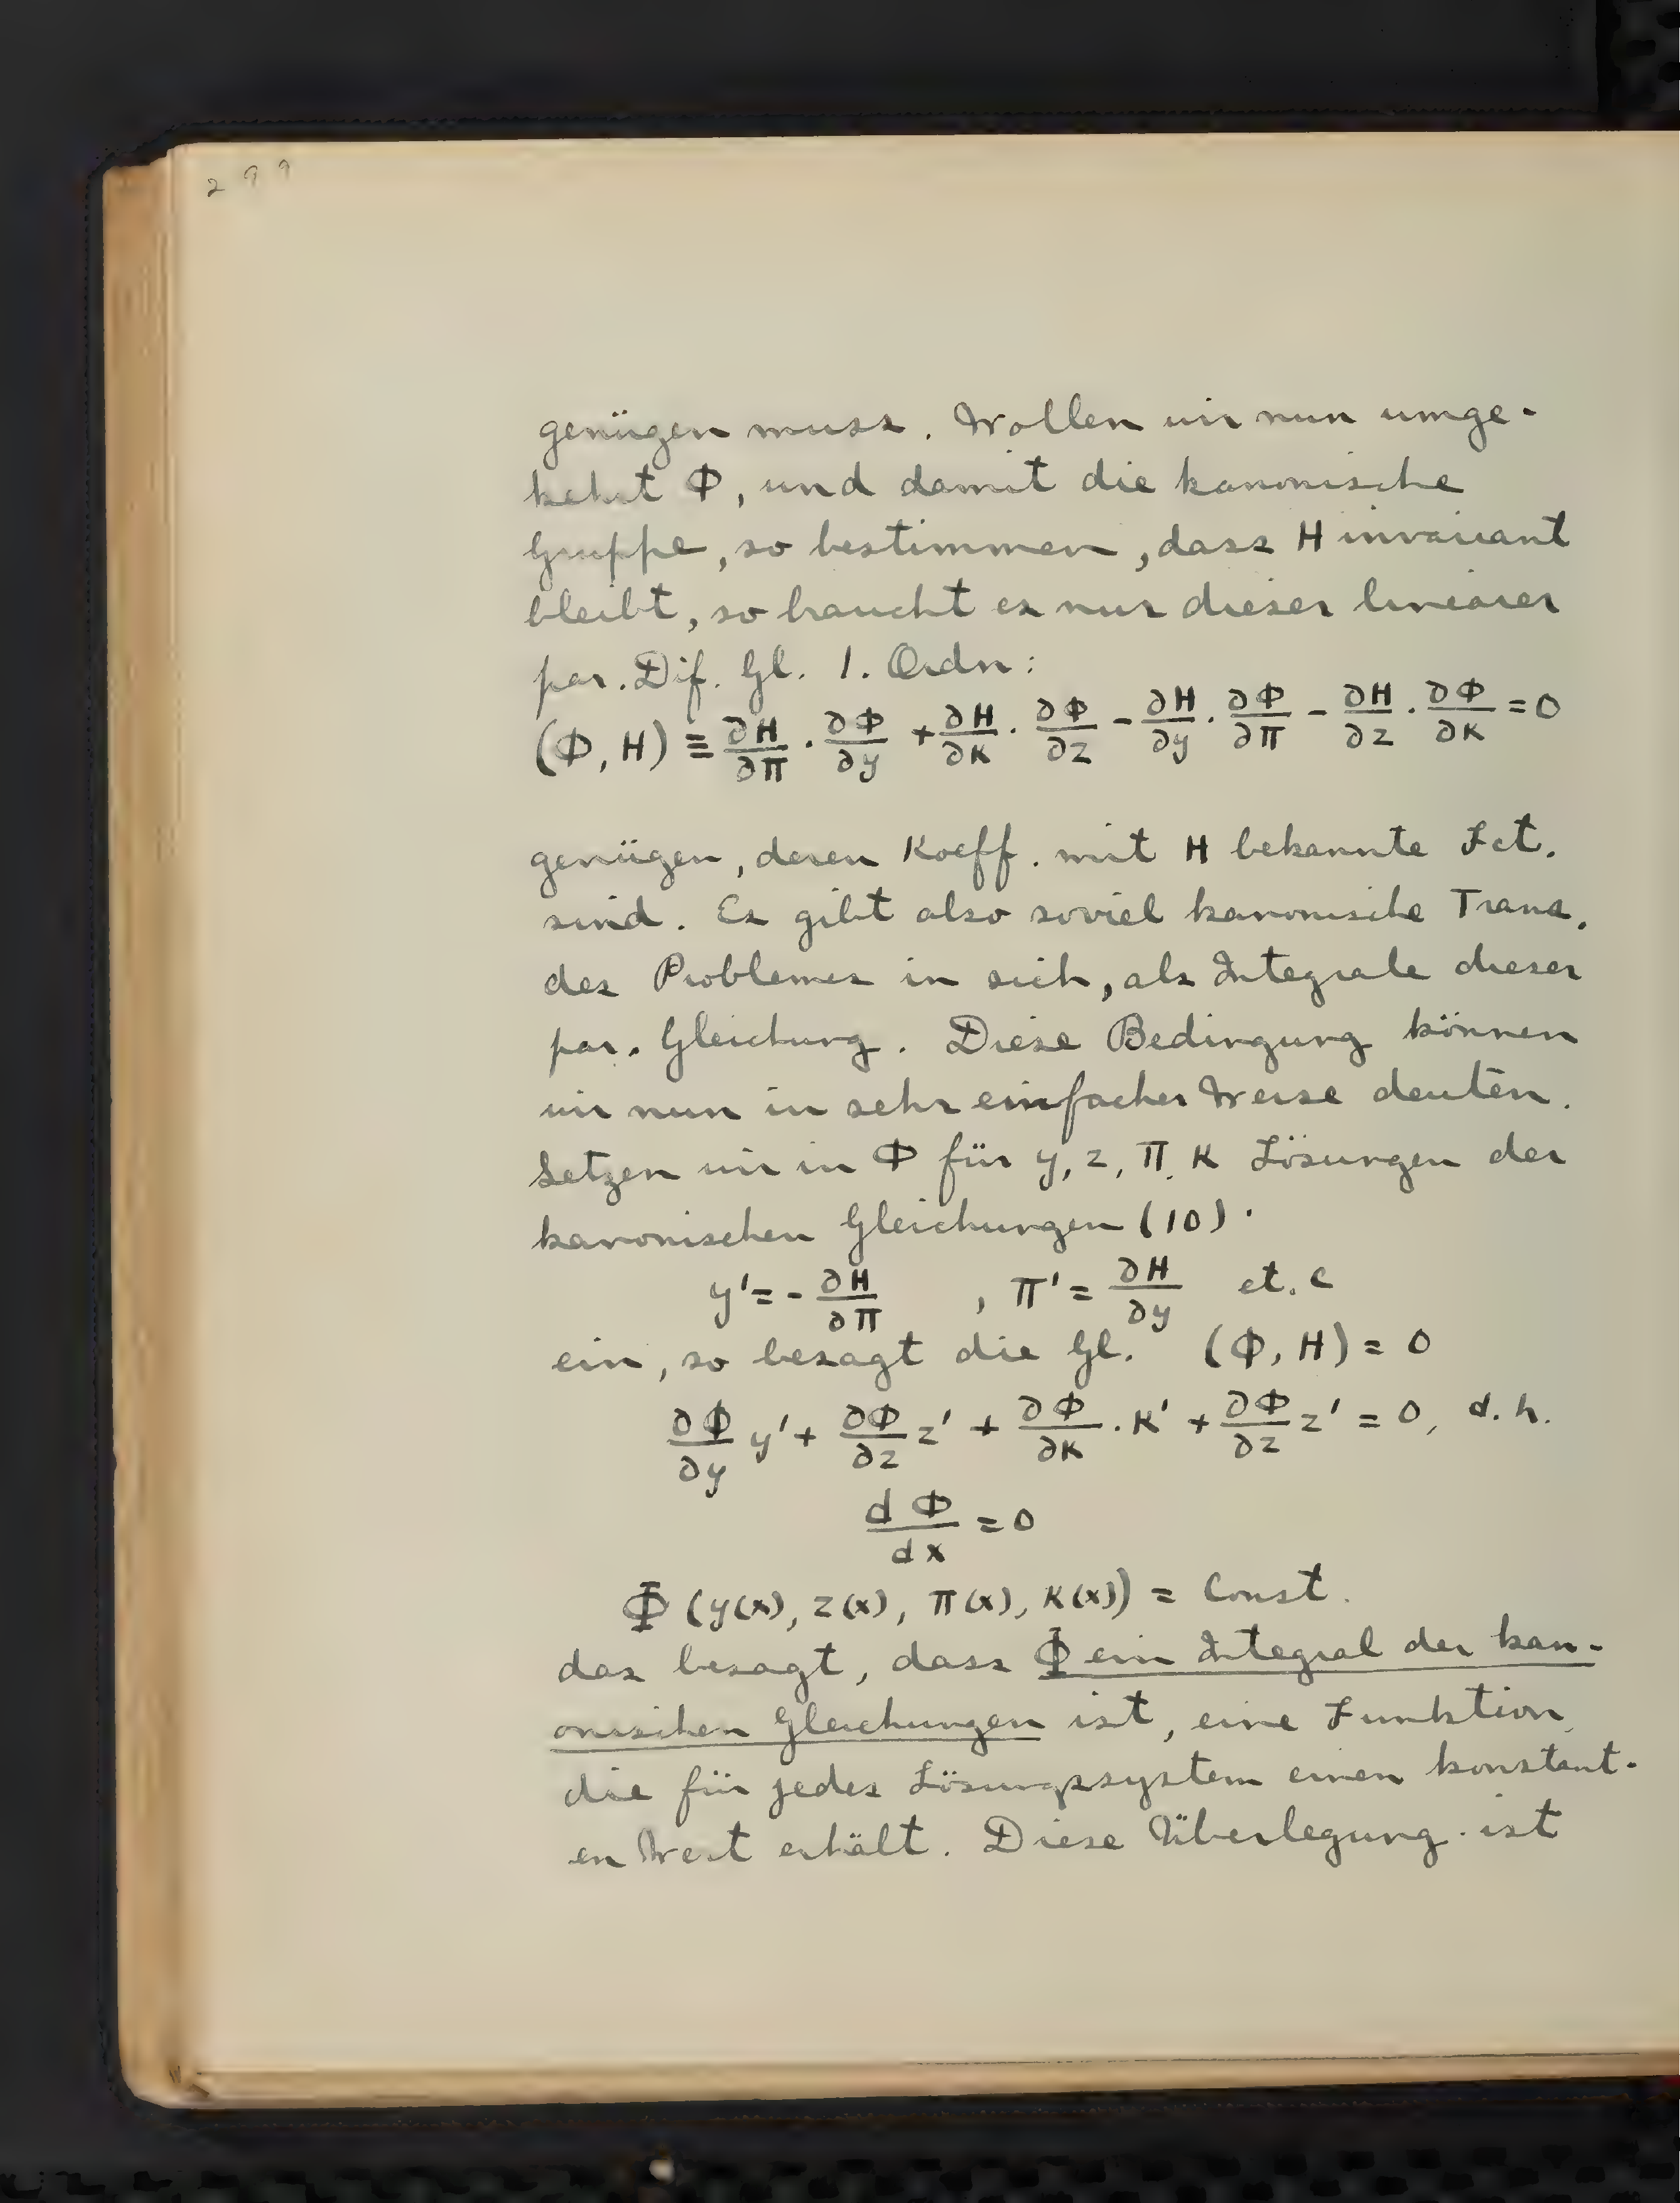 299
genügen muss. Wollen wir nun umge-
kehrt Φ, und damit die kanonische
Gruppe, so bestimmen, dass H invariant
bleibt, so braucht es nur dieser linearer
par. Dif. Gl. 1. Ordn:
(Φ, H) ≡ ∂H/∂π · ∂Φ/∂y + ∂H/∂κ · ∂Φ/∂z - ∂H/∂y · ∂Φ/∂π - ∂H/∂z · ∂Φ/∂κ = 0
genügen, deren Koeff. mit H bekannte Fct.
sind. Es gibt also soviel kanonische Trans.
des Problemes in sich, als Integrale dieser
par. Gleichung. Diese Bedingung können
wir nun in sehr einfacher Weise deuten.
Setzen wir in Φ für y, z, π, κ Lösungen der
kanonischen Gleichungen (10).
y' = - ∂H/∂π , π' = ∂H/∂y et. c
ein, so besagt die Gl. (Φ, H) = 0
∂Φ/∂y y' + ∂Φ/∂z z' + ∂Φ/∂κ · κ' + ∂Φ/∂z z' = 0, d. h.
dΦ/dx = 0
Φ (y(x), z(x), π(x), κ(x)) = Const.
das besagt, dass Φ ein Integral der kan-
onischen Gleichungen ist, eine Funktion,
die für jedes Lösungssystem einen konstant-
en Wert erhält. Diese Überlegung ist